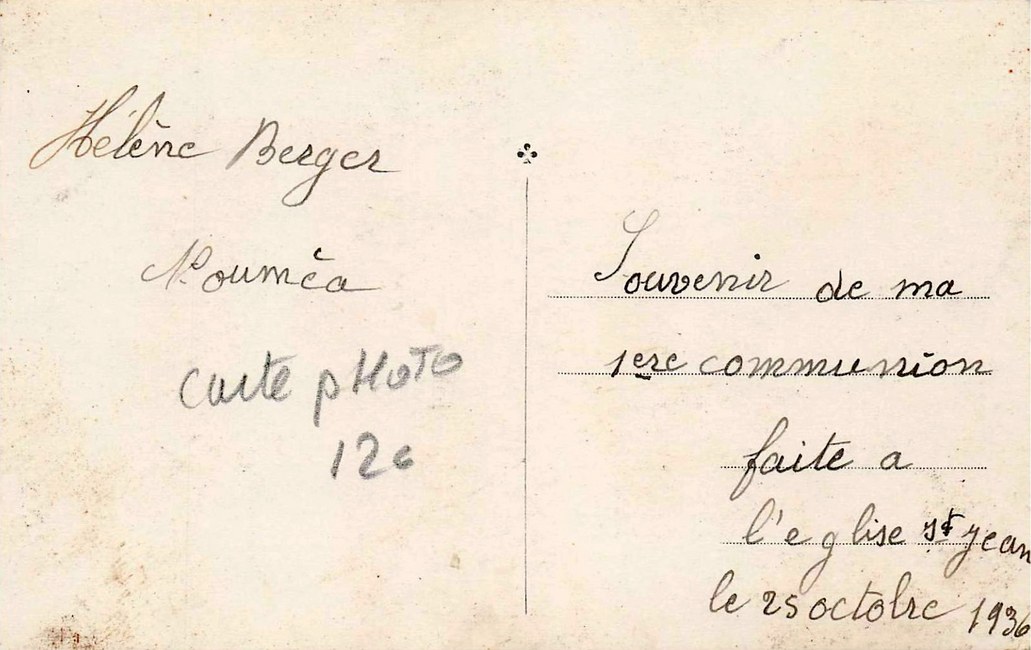 Hélène Berger
Nouméa
carte pHoTo
12€
Souvenir de ma
1ere communion
faite a
l'eglise St jean
le 25 octobre 1936